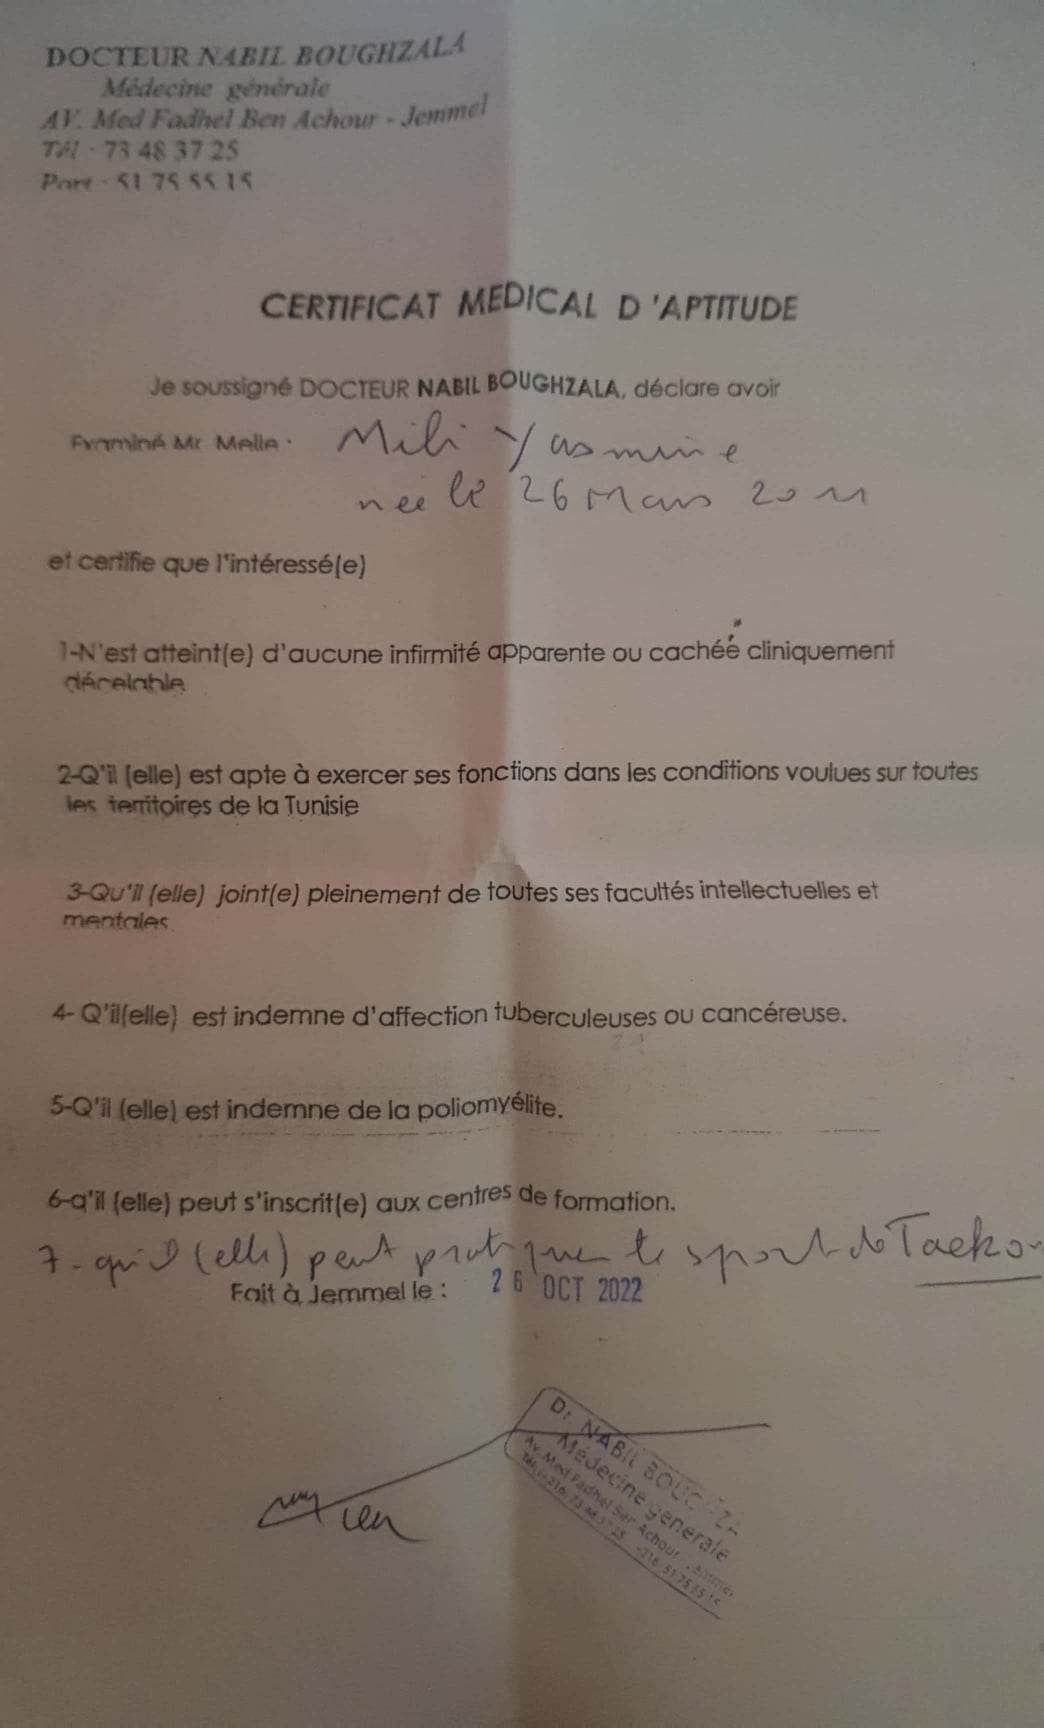 DOCTEUR NABIL BOUGHZALA
Médecine générale
AV. Med Fadhel Ben Achour - Jemmel
Tél : 73 48 37 25
Port : 51 75 55 15
CERTIFICAT MEDICAL D 'APTITUDE
Je soussigné DOCTEUR NABIL BOUGHZALA, déclare avoir
Examiné Mr Melle : Mili Yasmine
née le 26 Mars 2011
et certifie que l'intéressé(e)
1-N'est atteint(e) d'aucune infirmité apparente ou cachéé cliniquement
décelable
2-Q'il (elle) est apte à exercer ses fonctions dans les conditions voulues sur toutes
les territoires de la Tunisie
3-Qu'il (elle) joint(e) pleinement de toutes ses facultés intellectuelles et
mentales
4- Q'il(elle) est indemne d'affection tuberculeuses ou cancéreuse.
5-Q'il (elle) est indemne de la poliomyélite.
6-q'il (elle) peut s'inscrit(e) aux centres de formation.
7- qu'il (elle) peut pratiquer le sport de Taeko
Fait à Jemmel le : 26 OCT 2022
Dr NABIL
Médecine générale
Av. Med Fadhel Ben Achour